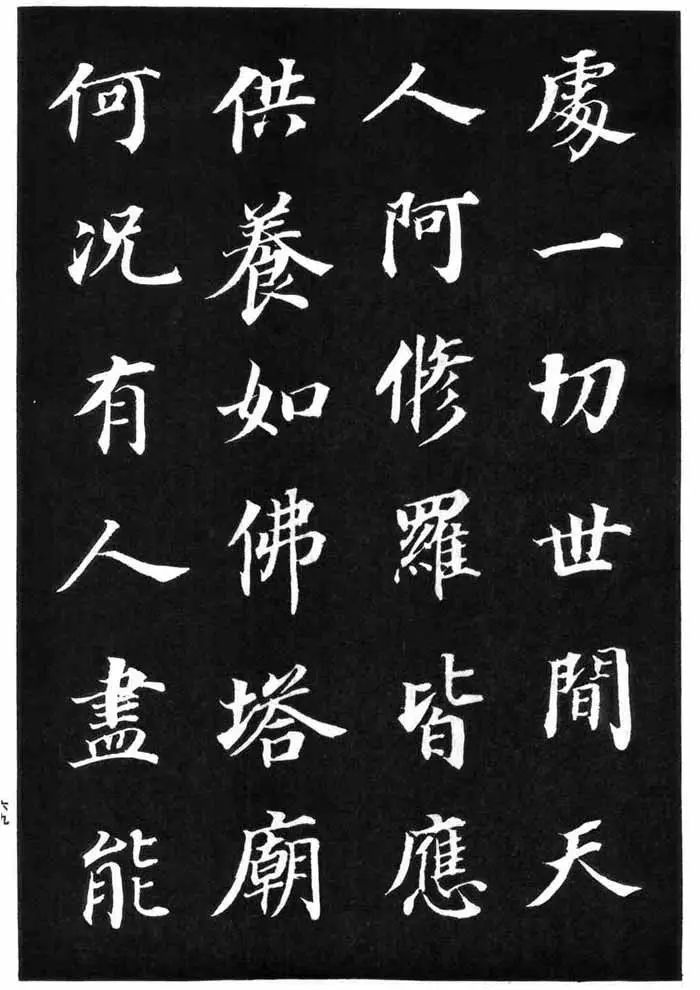 處一切世間天
人阿修羅皆應
供養如佛塔廟
何況有人盡能
六九